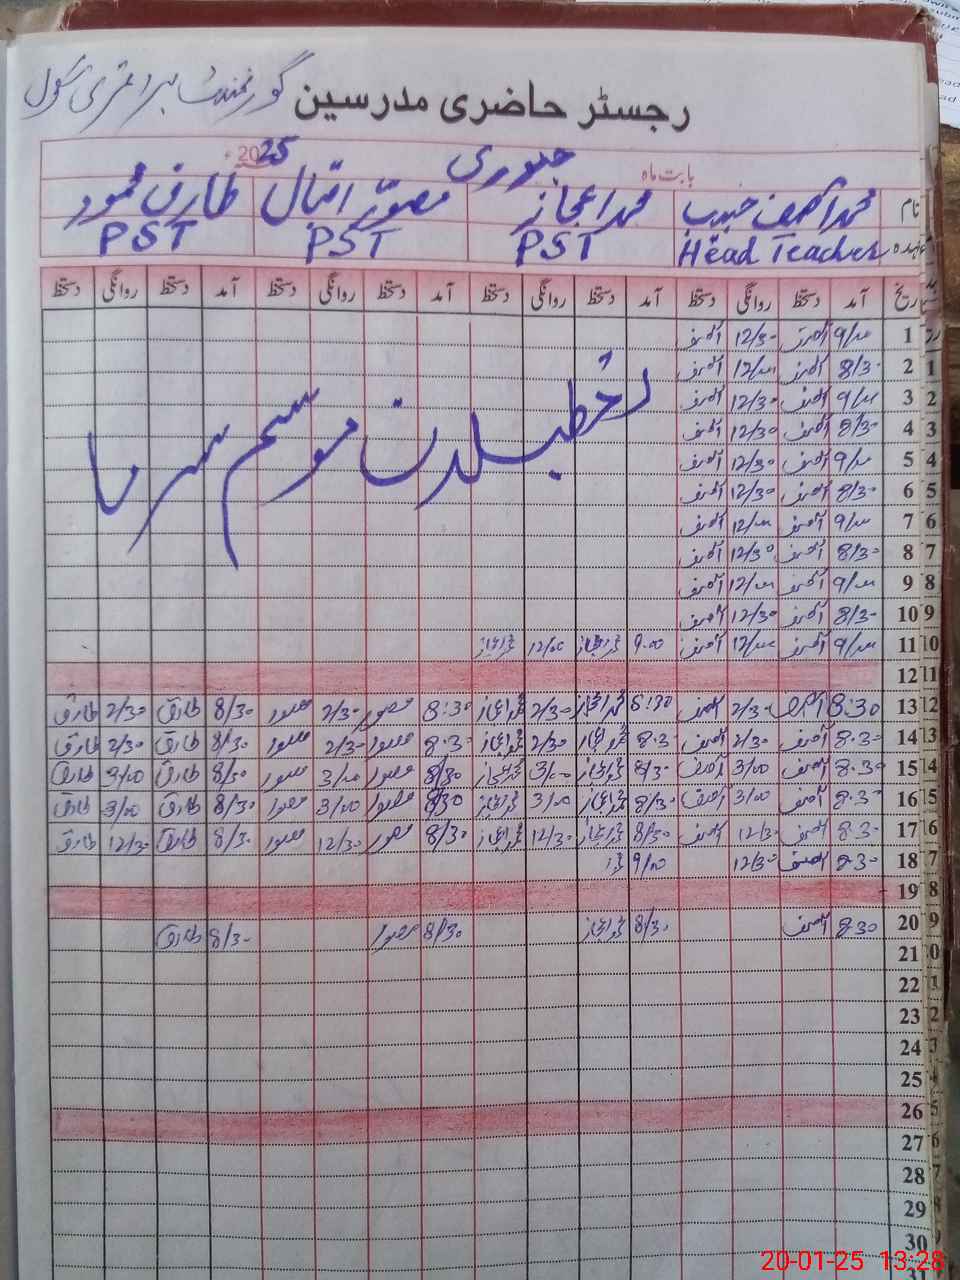 گورنمنٹ پرائمری سکول
رجسٹر حاضری مدرسین
بابت ماہ جنوری 2025ء
نام محمد آصف حبیب محمد اعجاز منصور اقبال طارق محمود
عہدہ Head Teacher PST PST PST
تاریخ آمد دستخط روانگی دستخط آمد دستخط روانگی دستخط آمد دستخط روانگی دستخط آمد دستخط روانگی دستخط
تعطیلات موسم سرما
1 9/00 آصف 12/30 آصف
2 8/30 آصف 12/00 آصف
3 9/00 آصف 12/30 آصف
4 8/30 آصف 12/30 آصف
5 9/00 آصف 12/30 آصف
6 8/30 آصف 12/30 آصف
7 9/00 آصف 12/00 آصف
8 8/30 آصف 12/30 آصف
9 9/00 آصف 12/00 آصف
10 8/30 آصف 12/30 آصف
11 9/00 آصف 12/00 آصف 9.00 محمد اعجاز 12/00 محمد اعجاز
12
13 8:30 آصف 2/30 آصف 8:30 محمد اعجاز 2/30 محمد اعجاز 8:30 منصور 2/30 منصور 8/30 طارق 2/30 طارق
14 8.30 آصف 2/30 آصف 8.30 محمد اعجاز 2/30 محمد اعجاز 8.30 منصور 2/30 منصور 8/30 طارق 2/30 طارق
15 8.30 آصف 3/00 آصف 8/30 محمد اعجاز 3/00 محمد اعجاز 8/30 منصور 3/00 منصور 8/30 طارق 3/00 طارق
16 8.30 آصف 3/00 آصف 8/30 محمد اعجاز 3/00 محمد اعجاز 8/30 منصور 3/00 منصور 8/30 طارق 3/00 طارق
17 8.30 آصف 12/30 آصف 8/30 محمد اعجاز 12/30 محمد اعجاز 8/30 منصور 12/30 منصور 8/30 طارق 12/30 طارق
18 8.30 آصف 12/30 9/00 محمد
19
20 8.30 آصف 8/30 محمد اعجاز 8/30 منصور 8/30 طارق
21
22
23
24
25
26
27
28
29
30
31
20-01-25 13:28